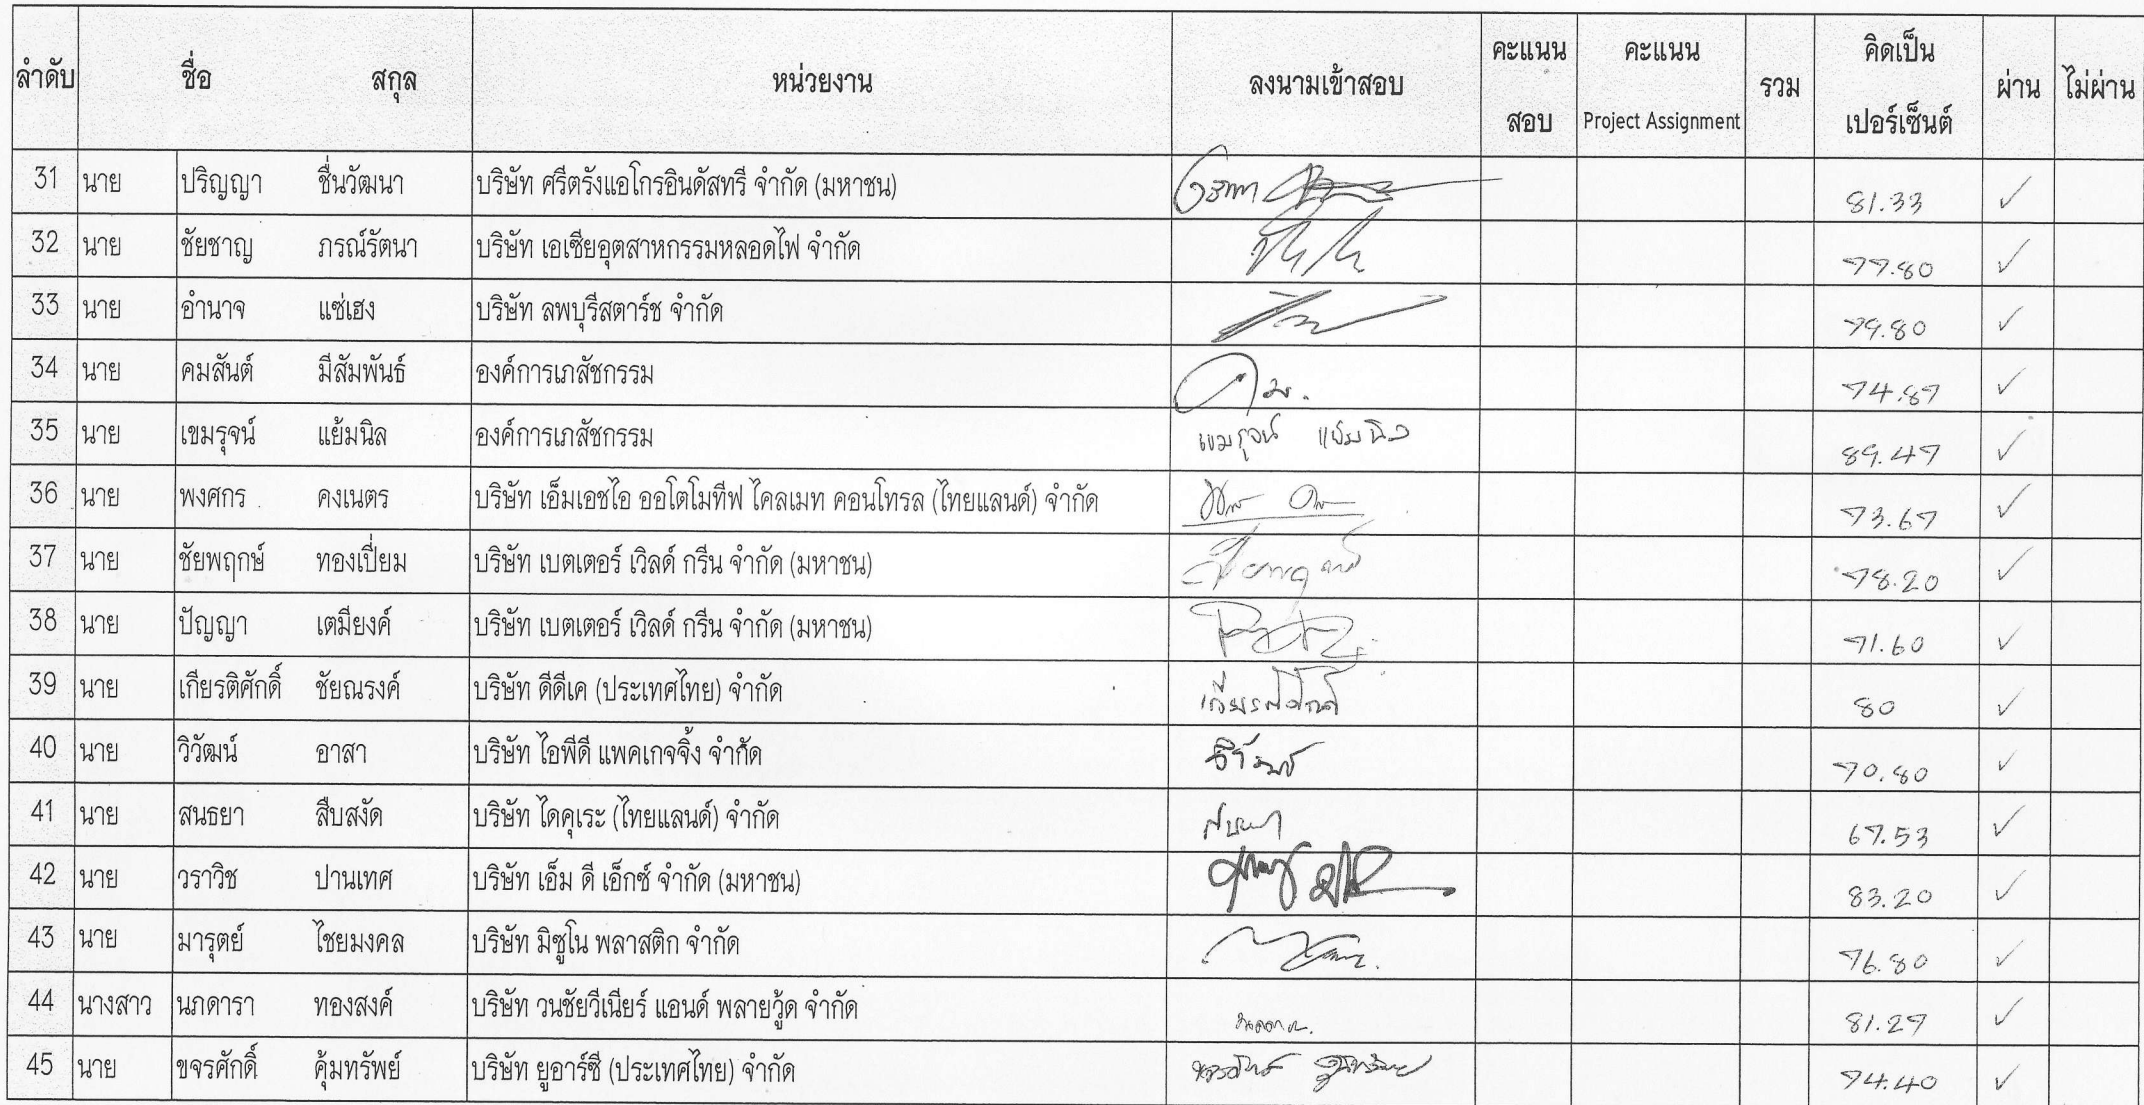 ลำดับ ชื่อ สกุล หน่วยงาน ลงนามเข้าสอบ คะแนนสอบ คะแนน Project Assignment รวม คิดเป็นเปอร์เซ็นต์ ผ่าน ไม่ผ่าน
31 นาย ปริญญา ชื่นวัฒนา บริษัท ศรีตรังแอโกรอินดัสทรี จำกัด (มหาชน) 81.33 ✓
32 นาย ชัยชาญ ภรณ์รัตนา บริษัท เอเซียอุตสาหกรรมหลอดไฟ จำกัด 77.80 ✓
33 นาย อำนาจ แซ่เฮง บริษัท ลพบุรีสตาร์ช จำกัด 79.80 ✓
34 นาย คมสันต์ มีสัมพันธ์ องค์การเภสัชกรรม 74.87 ✓
35 นาย เขมรุจน์ แย้มนิล องค์การเภสัชกรรม เขมรุจน์ แย้มนิล 89.47 ✓
36 นาย พงศกร คงเนตร บริษัท เอ็มเอชไอ ออโตโมทีฟ ไคลเมท คอนโทรล (ไทยแลนด์) จำกัด 73.67 ✓
37 นาย ชัยพฤกษ์ ทองเปี่ยม บริษัท เบตเตอร์ เวิลด์ กรีน จำกัด (มหาชน) 78.20 ✓
38 นาย ปัญญา เตมียงค์ บริษัท เบตเตอร์ เวิลด์ กรีน จำกัด (มหาชน) 71.60 ✓
39 นาย เกียรติศักดิ์ ชัยณรงค์ บริษัท ดีดีเค (ประเทศไทย) จำกัด เกียรติศักดิ์ 80 ✓
40 นาย วิวัฒน์ อาสา บริษัท ไอพีดี แพคเกจจิ้ง จำกัด 70.80 ✓
41 นาย สนธยา สืบสงัด บริษัท ไดคุเระ (ไทยแลนด์) จำกัด 67.53 ✓
42 นาย วราวิช ปานเทศ บริษัท เอ็ม ดี เอ็กซ์ จำกัด (มหาชน) 83.20 ✓
43 นาย มารุตย์ ไชยมงคล บริษัท มิซูโน พลาสติก จำกัด 76.80 ✓
44 นางสาว นภดารา ทองสงค์ บริษัท วนชัยวีเนียร์ แอนด์ พลายวู้ด จำกัด 81.27 ✓
45 นาย ขจรศักดิ์ คุ้มทรัพย์ บริษัท ยูอาร์ซี (ประเทศไทย) จำกัด 74.40 ✓